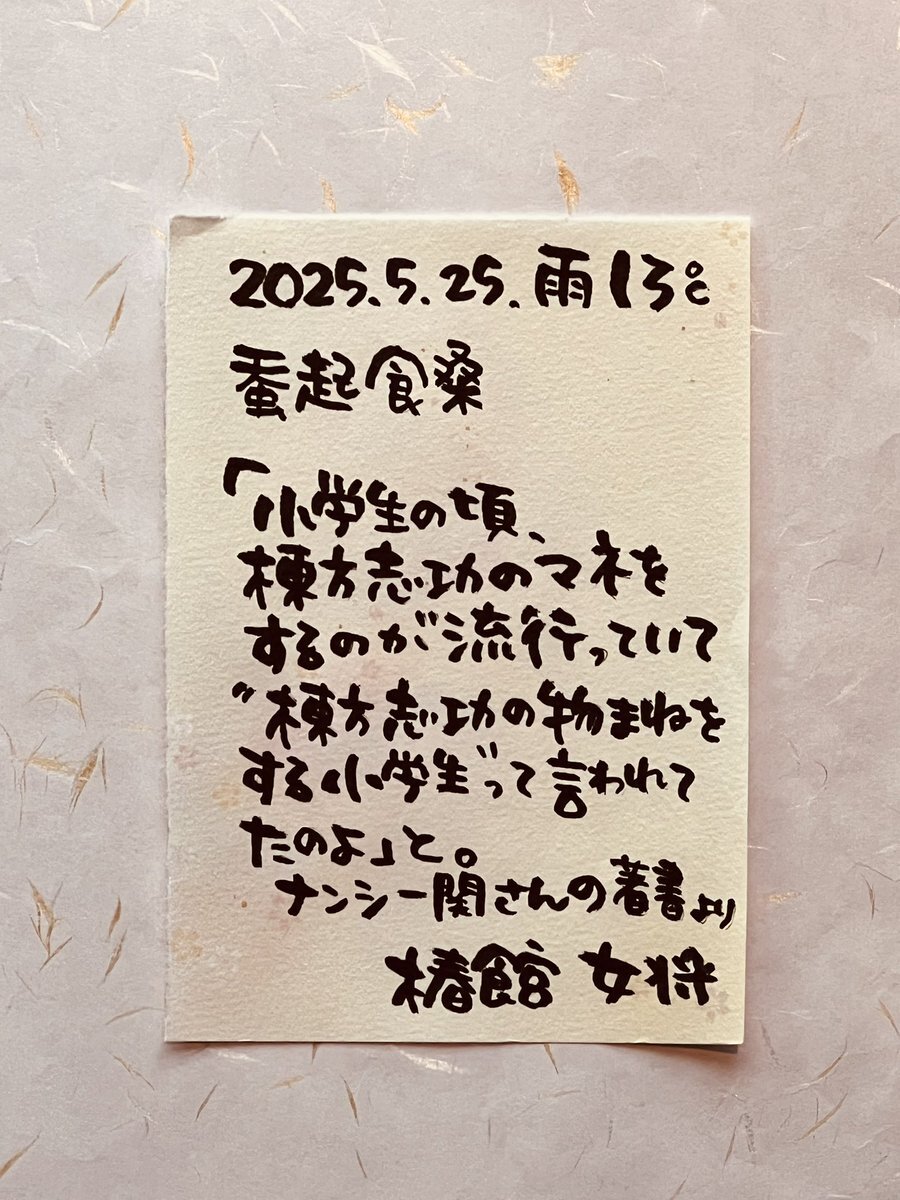 2025.5.25.雨13℃
蚕起食桑
「小学生の頃、
棟方志功のマネを
するのが流行っていて
〝棟方志功の物まねを
する小学生〟って言われて
たのよ」と。
ナンシー関さんの著書より
椿館 女将